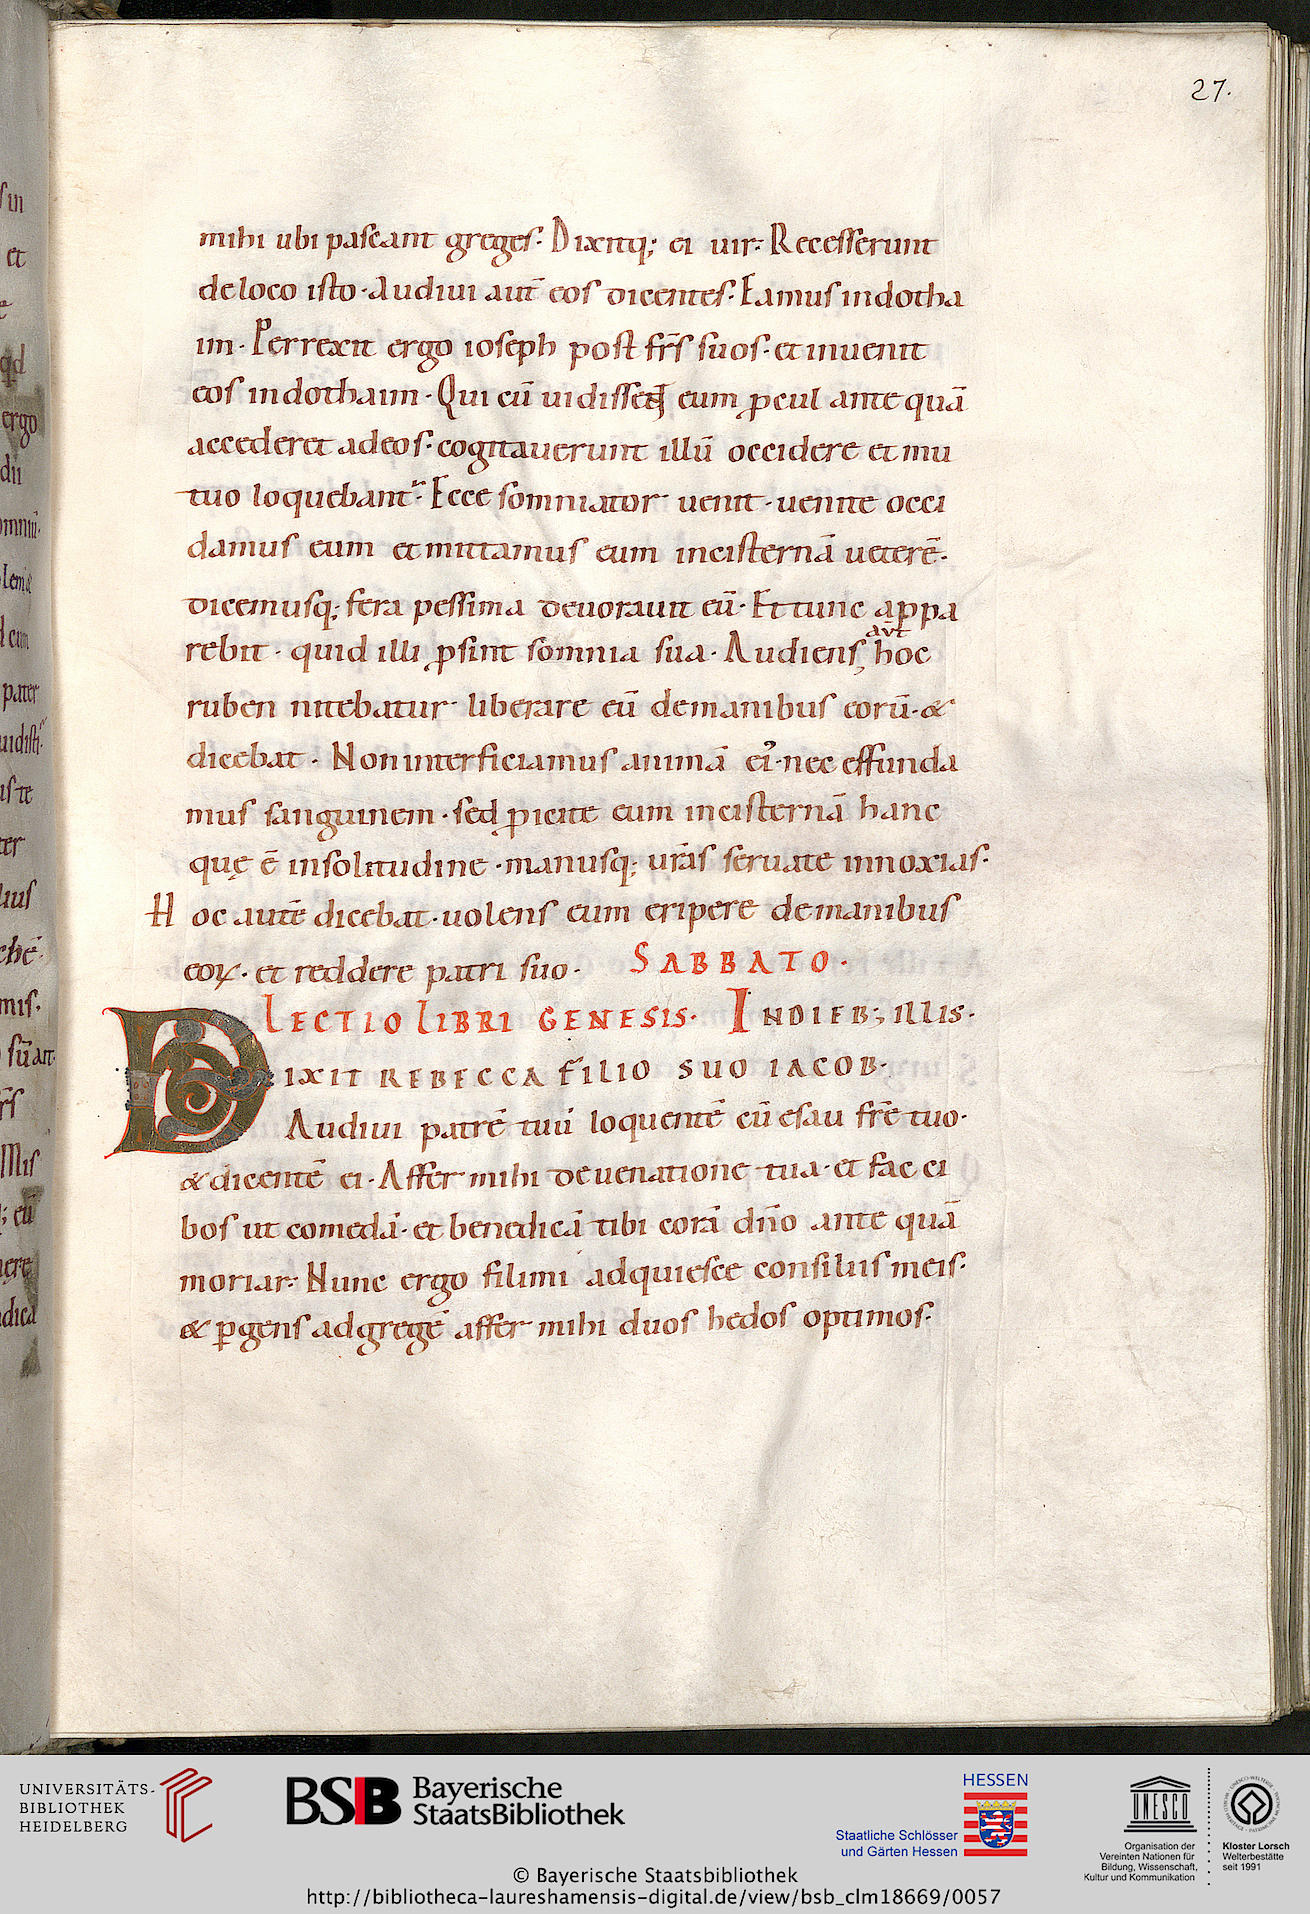 27.
mihi ubi pascant greges. Dixitq; ei uir. Recesserunt
de loco isto. Audiui aut̄ eos dicentes. Eamus in dotha
im. Perrexit ergo ioseph post fr̄s suos. et inuenit
eos in dothaim. Qui cū uidissent eum ꝓcul ante quā
accederet ad eos. cogitauerunt illū occidere et mu
tuo loquebant᷑. Ecce somniator uenit. uenite occi
damus eum et mittamus eum in cisternā ueterē.
dicemusq; fera pessima deuorauit eū. Et tunc appa
rebit. quid illi ꝓsint somnia sua. Audiens aūt hoc
ruben nitebatur liberare eū de manibus eorū. &
dicebat. Non interficiamus animā ei᾽. nec effunda
mus sanguinem. sed ꝓicite eum in cisternā hanc
quę ē in solitudine. manusq; ur̄as seruate innoxias.
Hoc autē dicebat. uolens eum eripere de manibus
eoꝝ. et reddere patri suo. SABBATO.
LECTIO LIBRI GENESIS. INDIEB; illis.
DIXIT REBECCA FILIO SUO IACOB.
Audiui patrē tuū loquentē cū esau fr̄e tuo.
& dicentē ei. Affer mihi de uenatione tua. et fac ci
bos ut comedā. et benedicā tibi corā dn̄o ante quā
moriar. Nunc ergo fili mi adquiesce consiliis meis.
& ꝑgens ad gregē affer mihi duos hedos optimos.
sin
et
qd
ergo
dū
pater
uis te
ter
lius
mis.
fr̄s
Mis
; eū
dica
UNIVERSITÄTS-
BIBLIOTHEK
HEIDELBERG
BSB Bayerische
StaatsBibliothek
HESSEN
Staatliche Schlösser
und Gärten Hessen
UNESCO
Organisation der
Vereinten Nationen für
Bildung, Wissenschaft,
Kultur und Kommunikation
Kloster Lorsch
Welterbestätte
seit 1991
© Bayerische Staatsbibliothek
http://bibliotheca-laureshamensis-digital.de/view/bsb_clm18669/0057